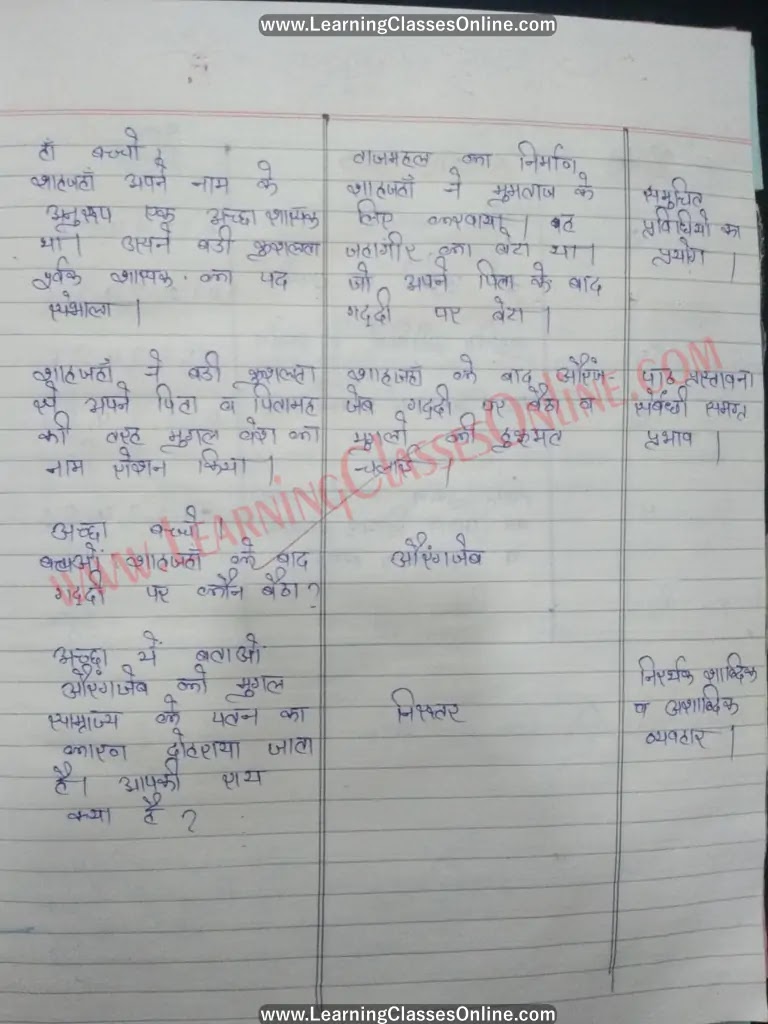 www.LearningClassesOnline.com
हाँ बच्चो
शाहजहाँ अपने नाम के
अनुरूप एक अच्छा शासक
था। उसने बडी कुशलता
पूर्वक शासक का पद
संभाला।
शाहजहाँ ने बडी कुशलता
से अपने पिता व पितामह
की तरह मुगल वंश का
नाम रोशन किया।
अच्छा बच्चो।
बताओं शाहजहाँ के बाद
गद्दी पर कौन बैठा?
अच्छा ये बताओ
औरंगजेब को मुगल
साम्राज्य के पतन का
कारण ठोहराया जाता
है। आपकी राय
क्या है?
ताजमहल का निर्माण
शाहजहाँ ने मुमताज के
लिए करवाया। वह
जहागीर का बेटा था।
जो अपने पिता के बाद
गद्दी पर बेठा।
शाहाजहाँ के बाद औरंग
जेब गद्दी पर बैठा व
मुगलो की हुकूमत
चलाई।
औरंगजेब
निरुत्तर
समुचित
प्रविधियो का
प्रयोग।
पाठ प्रस्तावना
संबंधी समग्र
प्रभाव।
निरर्थक शाब्दिक
व अशाब्दिक
व्यवहार।
www.LearningClassesOnline.com
www.LearningClassesOnline.com